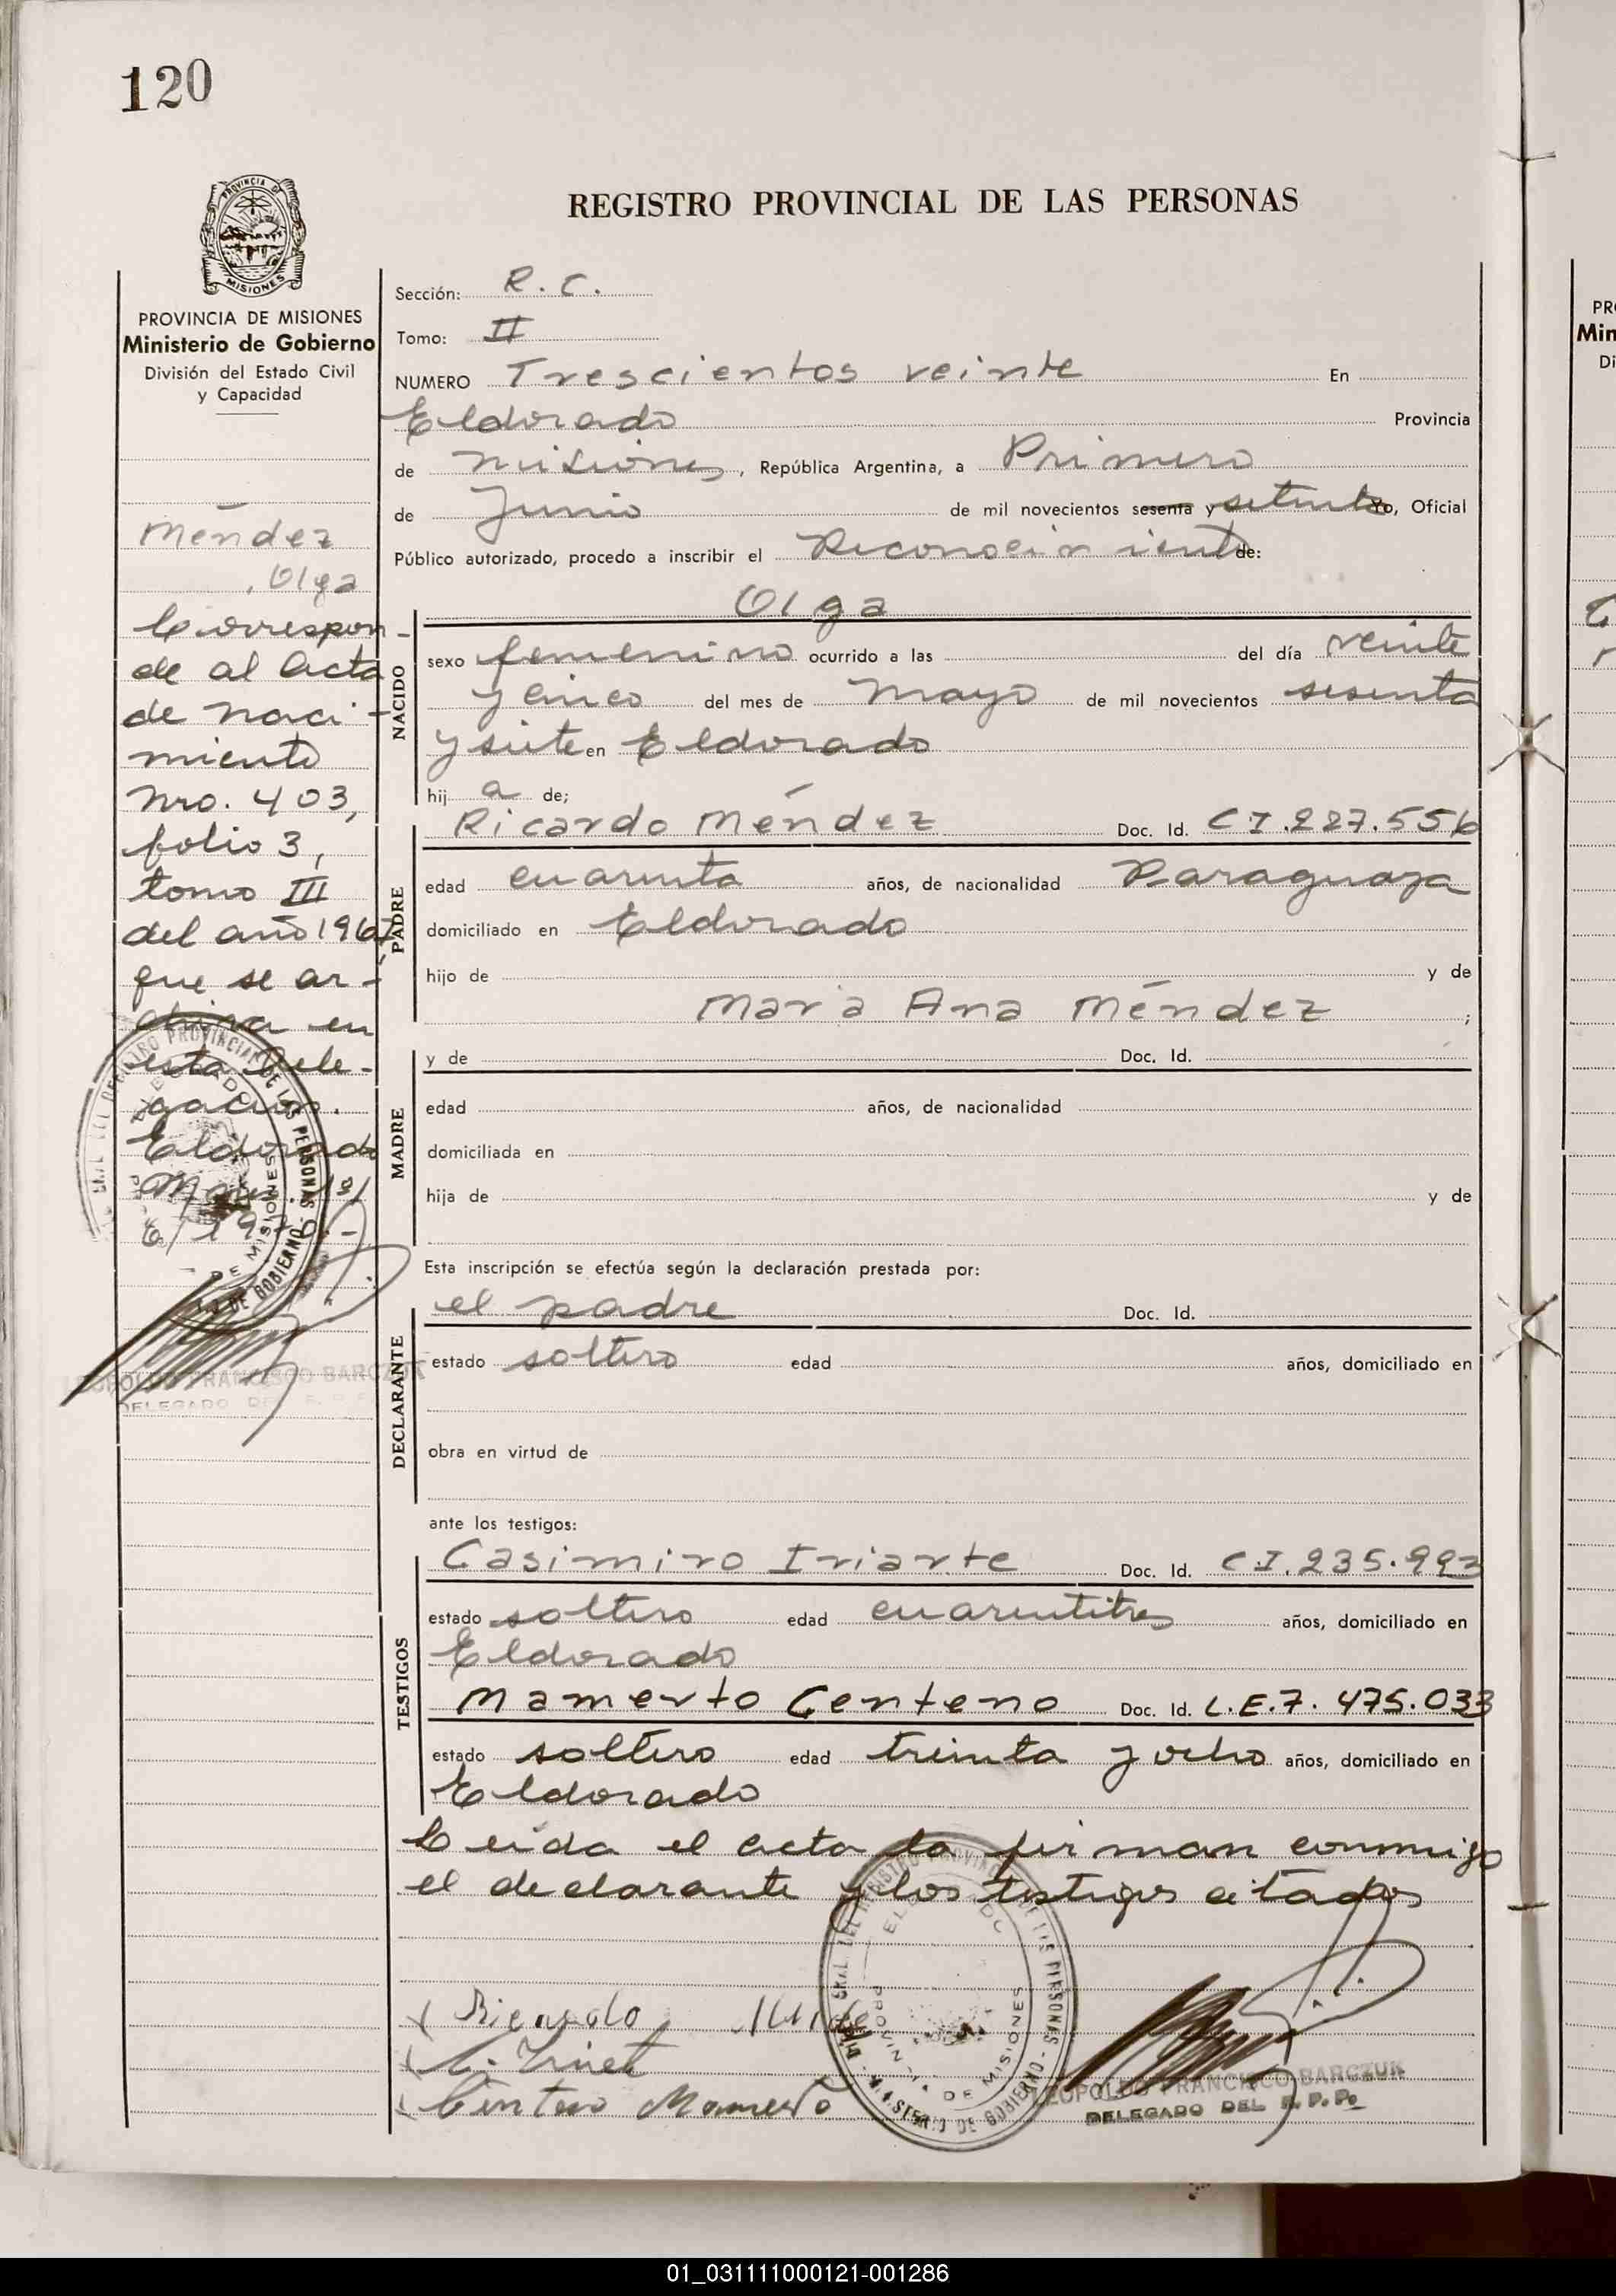 120
PROVINCIA DE
MISIONES
REGISTRO PROVINCIAL DE LAS PERSONAS
PROVINCIA DE MISIONES
Ministerio de Gobierno
División del Estado Civil
y Capacidad
Méndez
, Olga
Correspon-
de al acta
de naci-
miento
Nro. 403,
folio 3,
tomo III
del año 1967
que se ar-
chiva en
esta Dele-
gación.
Eldorado
LEOPOLDO FRANCISCO BARCZUK
DELEGADO DEL R. P. P.
Sección: R. C.
Tomo: II
NUMERO Trescientos veinte En
Eldorado Provincia
de Misiones, República Argentina, a Primero
de Junio de mil novecientos sesenta y setenta Yo, Oficial
Público autorizado, procedo a inscribir el Reconocimiento de:
Olga
NACIDO
sexo femenino ocurrido a las del día veinte
y cinco del mes de Mayo de mil novecientos sesenta
y siete en Eldorado
hij a de;
Ricardo Méndez Doc. Id. CI.227.556
PADRE
edad cuarenta años, de nacionalidad Paraguaya
domiciliado en Eldorado
hijo de y de
Maria Ana Méndez ;
y de Doc. Id.
MADRE
edad años, de nacionalidad
domiciliada en
hija de y de
Esta inscripción se efectúa según la declaración prestada por:
el padre Doc. Id.
DECLARANTE
estado soltero edad años, domiciliado en
obra en virtud de
ante los testigos:
Casimiro Iriarte Doc. Id. CI.235.993
TESTIGOS
estado soltero edad cuarentitres años, domiciliado en
Eldorado
Mamerto Centeno Doc. Id. L.E.7.475.033
estado soltero edad treinta y ocho años, domiciliado en
Eldorado
Leida el acta la firman conmigo
el declarante y los testigos citados
Centeno Mamerto
LEOPOLDO FRANCISCO BARCZUK
DELEGADO DEL R. P. P.
PR
Min
Di
01_031111000121-001286